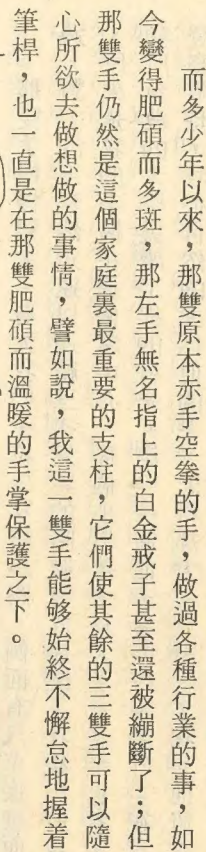 而多少年以來，那雙原本赤手空拳的手，做過各種行業的事，如
今變得肥碩而多斑，那左手無名指上的白金戒子甚至還被繃斷了；但
那雙手仍然是這個家庭裏最重要的支柱，它們使其餘的三雙手可以隨
心所欲去做想做的事情，譬如說，我這一雙手能够始終不懈怠地握着
筆桿，也一直是在那雙肥碩而溫暖的手掌保護之下。